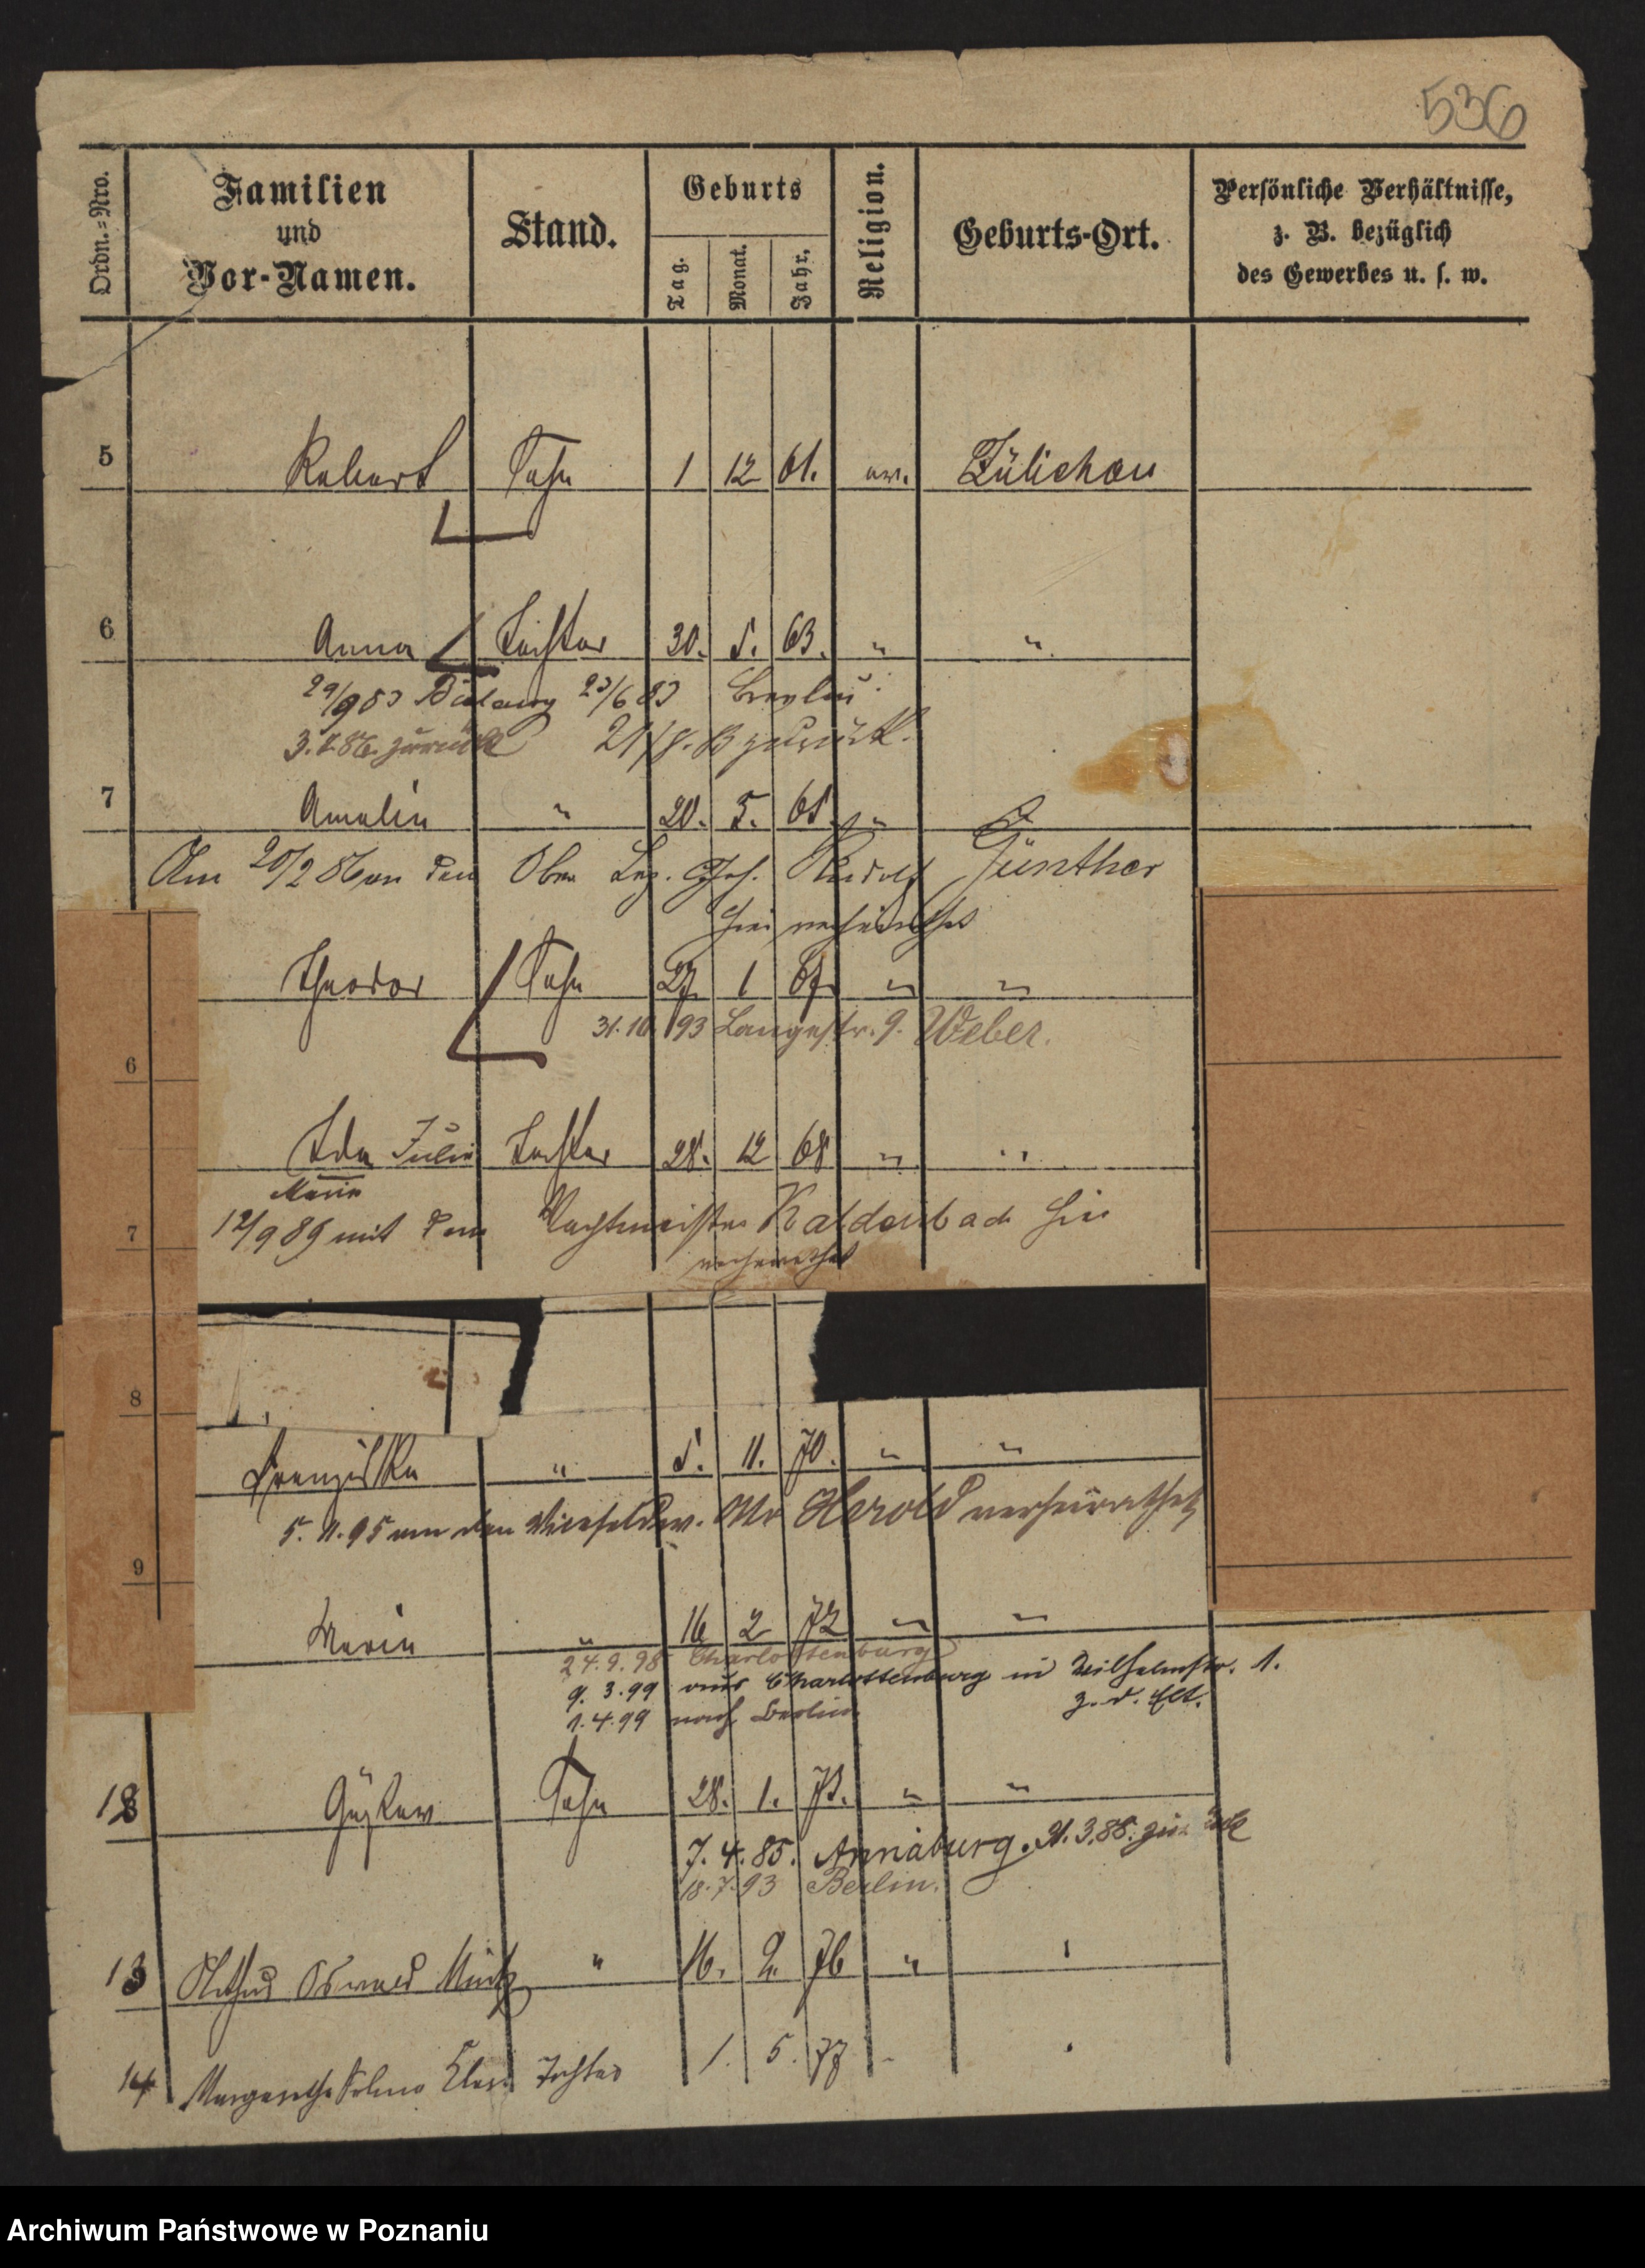 536
Ordn.=Nro.
Familien
und
Vor-Namen.
Stand.
Geburts
Tag.
Monat.
Jahr.
Religion.
Geburts-Ort.
Persönliche Verhältnisse,
z. B. bezüglich
des Gewerbes u. s. w.
5 Robert Sohn 1 12 61. ev. Züllichau
6 Anna Tochter 30. 5. 63. " "
23/6 83 Breslau
3. 8. 86. zurück zurück.
7 Amalie " 20. 5. 65. "
Am 20/2 86 an den Ober Rudolf Günther
hier verheirathet
Theodor Sohn 27. 1 67. " "
31. 10. 93 Langestr. 9. Weber.
6
Ida Julie Tochter 28. 12 68 " "
Marie
7
12/9 89 mit dem Wachtmeister Kaldenbach hier
verheirathet
8
Franziska " 5. 11. 70. " "
5. 11. 95 an den Vicefeldw. Herold verheirathet
9
Marie " 16 2 72 " "
24. 9. 98 Charlottenburg
9. 3. 99 aus Charlottenburg in Wilhelmstr. 1.
z. d. Elt.
1. 4. 99 nach Berlin
12 Gustav Sohn 28. 1. 75. " "
7. 4. 85. Annaburg. 31. 3. 88. zurück
18. 7. 93 Berlin.
13 Arthur Oswald Moritz " 16. 2. 76 " "
14 Margarethe Selma Clara Tochter 1. 5. 77
Archiwum Państwowe w Poznaniu